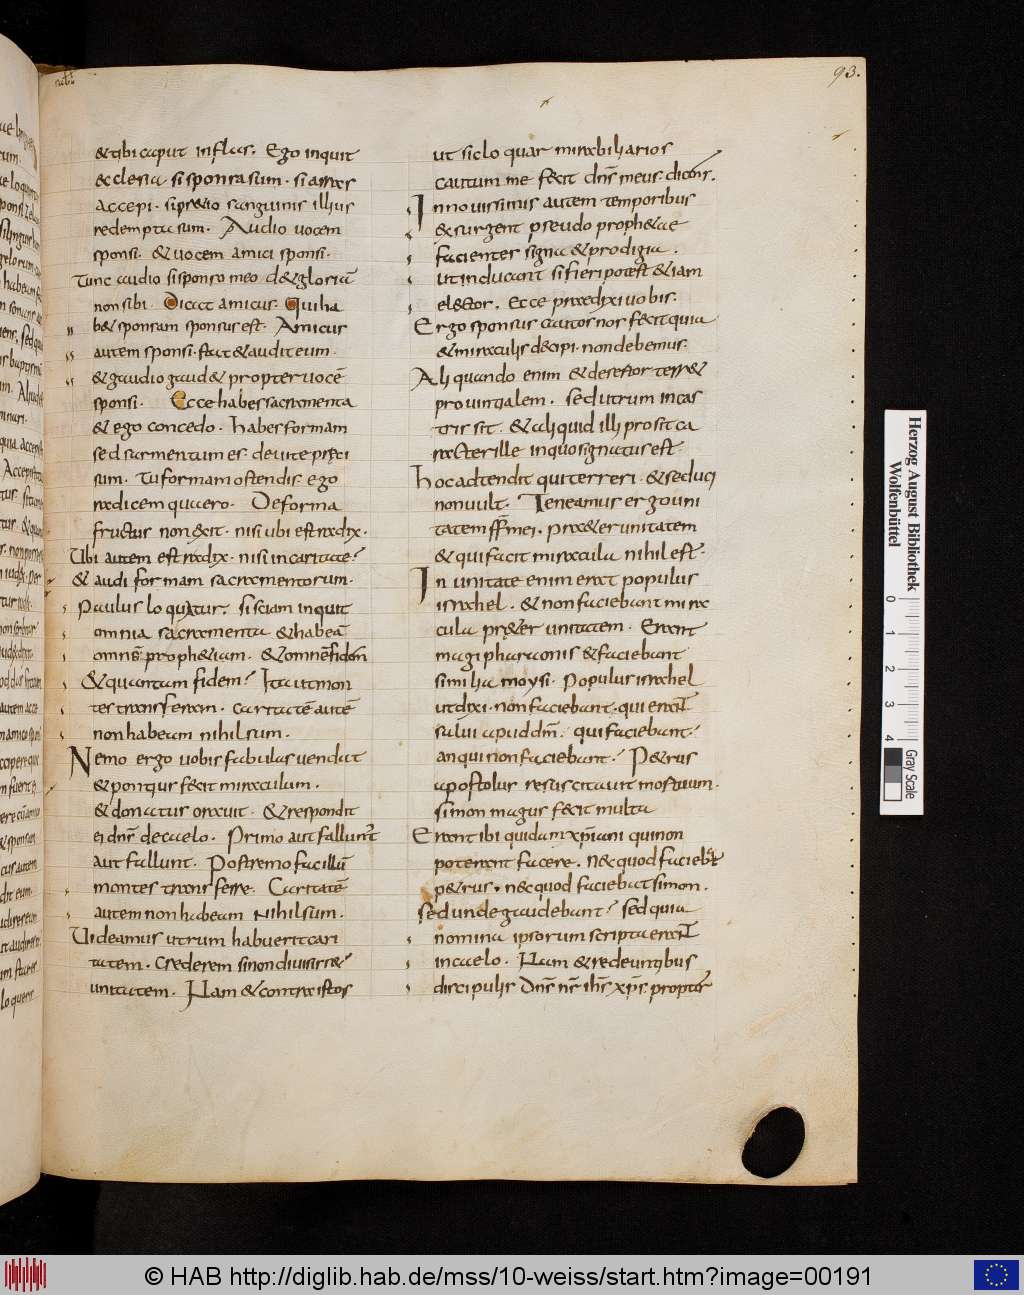 93.
& tibi caput inflas. Ego inquit
ecclesia si sponsa sum · si arras
accepi · si p̄tio sanguinis illius
redempta sum. Audio vocem
sponsi. & vocem amici sponsi.
Tunc audio si sponso meo d& gloriā
non sibi · Dicat amicus. Qui ha
b& sponsam sponsus est. Amicus
autem sponsi · stat & audit eum.
& gaudio gaud& propter vocē
sponsi. Ecce habes sacramenta
& ego concedo. habes formam
sed sarmentum es de vite p̄ci
sum. Tu formam ostendis. ego
radicem quaero. De forma
fructus non exit. nisi ubi est radix.
Ubi autem est radix. nisi in caritate?
& audi formam sacramentorum.
Paulus loquatur. si sciam inquit
omnia sacramenta & habeā
omnē proph&iam. & omnē fidem
& quantam fidem? Ita ut mon
tes transferam. caritatē autē
non habeam nihil sum.
Nemo ergo vobis fabulas vendat
& pontius fecit miraculum.
& donatus oravit. & respondit
ei dns̄ de caelo. Primo aut falluntur
aut fallunt. Postremo fac illū
montes transferre. Caritatē
autem non habeam nihil sum.
Videamus utrum habuerit cari
tatem. Crederem si non divisisset
unitatem. Nam & contra istos
ut sic loquar mirabiliarios
cautum me fecit dns̄ meus. dicens.
In novissimis autem temporibus
& surgent pseudo proph&ae
facientes signa & prodigia.
ut inducant si fieri potest & iam
electos. Ecce praedixi vobis.
Ergo sponsus cautos nos fecit quia
& miraculis decipi non debemus.
Aliquando enim & desertor terr&
provincialem. sed utrum in cas
tris sit. & aliquid illi prosit ca
racter ille in quo signatus est.
hoc adtendit qui terreri · & seduci
non vult. Teneamus ergo uni
tatem ffr̄ mei. praeter unitatem
& qui facit miracula nihil est.
In unitate enim erat populus
israhel. & non faciebant mira
cula praeter unitatem. Erant
magi pharaonis & faciebant
similia moysi. Populus israhel
ut dixi · non faciebant. qui erant
salvi apud dm̄. qui faciebant.
an qui non faciebant? P&rus
apostolus resuscitavit mortuum.
simon magus fecit multa
Erant ibi quidam xpīani qui non
poterant facere. nec quod faciebat
p&rus. nec quod faciebat simon.
sed unde gaudebant? sed quia
nomina ipsorum scripta erant
in caelo. Nam & redeuntibus
discipulis Dns̄ nr̄ ihs̄ xps̄. propter
Herzog August Bibliothek
Wolfenbüttel
0 1 2 3 4
Gray Scale
© HAB http://diglib.hab.de/mss/10-weiss/start.htm?image=00191